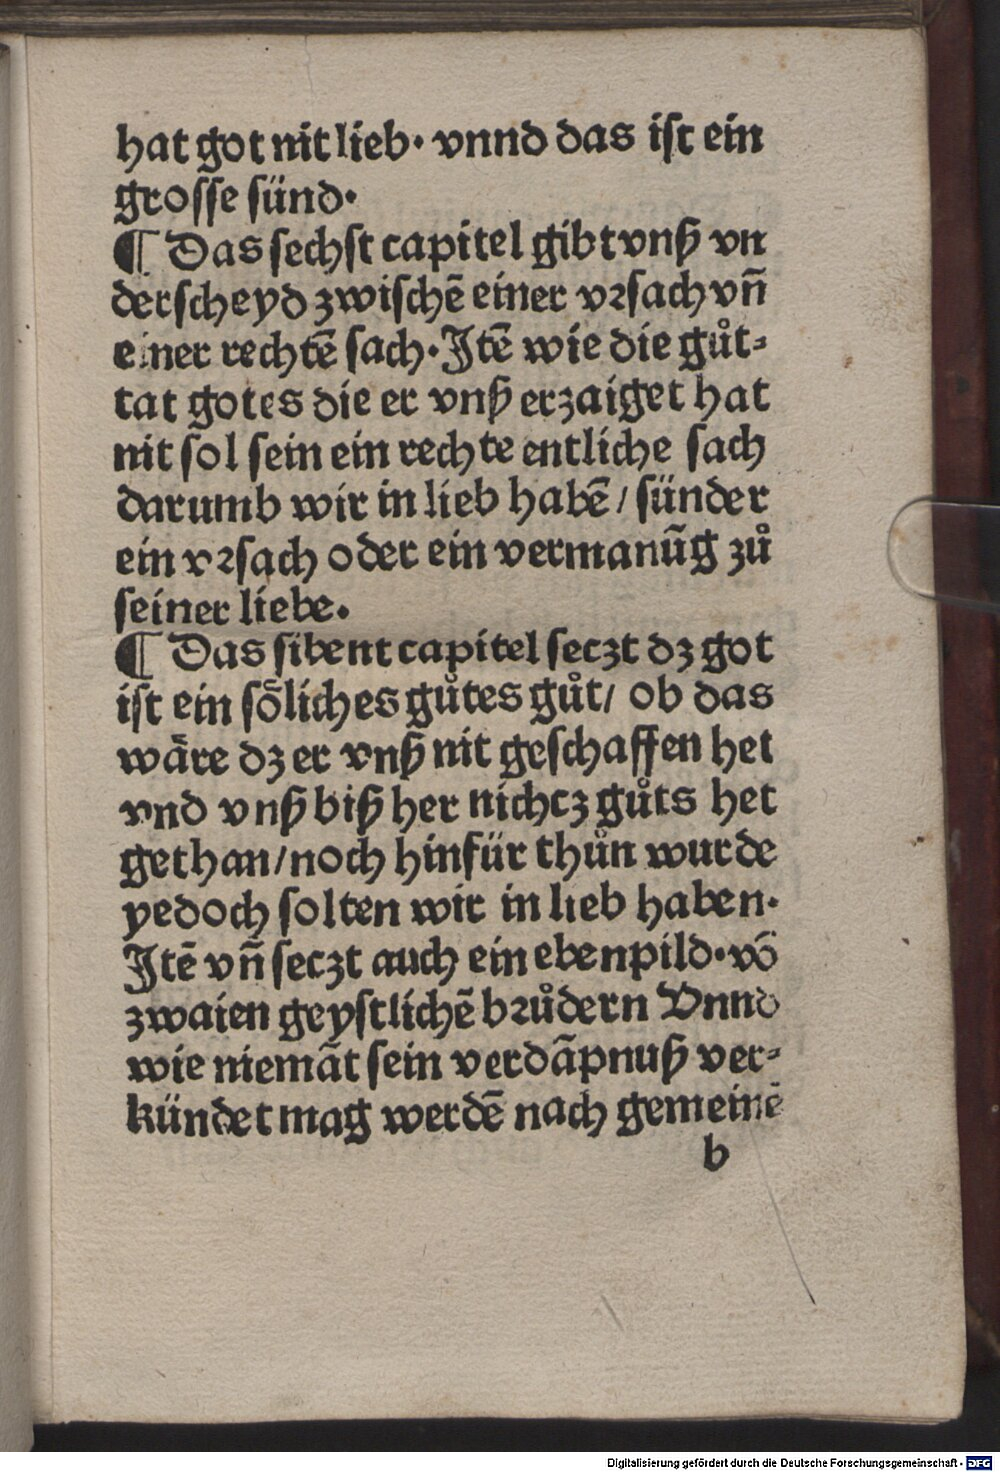 hat got nit lieb· vnnd das ist ein
grosse sünd·
¶ Das sechst capitel gibt vnß vn
derscheyd zwischē einer vrsach vñ
einer rechtē sach· Jtē wie die gůt⸗
tat gotes die er vnß erzaiget hat
nit sol sein ein rechte entliche sach
darumb wir in lieb habē / sünder
ein vrsach oder ein vermanūg zů
seiner liebe·
¶ Das sibent capitel seczt dz got
ist ein sölliches gůtes gůt/ ob das
wäre dz er vnß nit geschaffen het
vnd vnß biß her nichcz gůts het
gethan/noch hinfür thůn wurde
yedoch solten wir in lieb haben·
Jtē vñ seczt auch ein ebenpild· vō
zwaien geystlichē brůdern Vnnd
wie niemāt sein verdāpnuß ver⸗
kündet mag werdē nach gemeinē
b
Digitalisierung gefördert durch die Deutsche Forschungsgemeinschaft - DFG